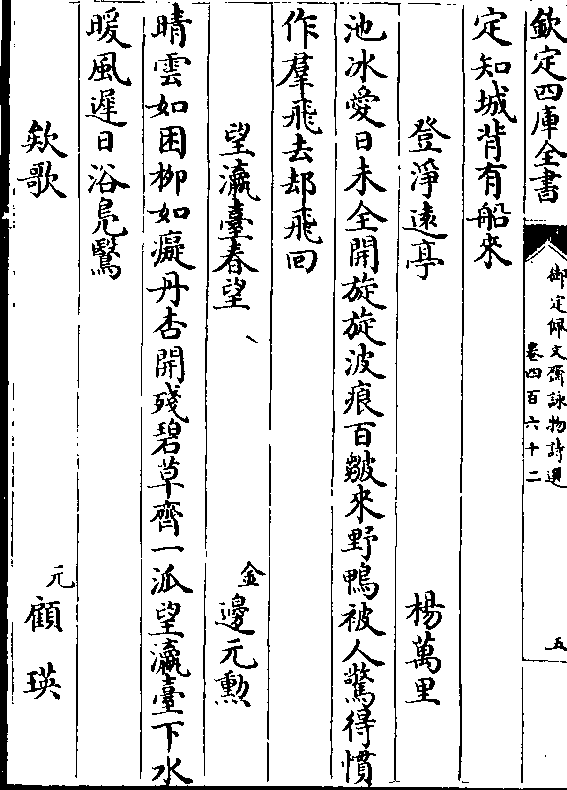 欽定四庫全書
御定佩文齋詠物詩選
卷四百六十二
五
定知城背有船來
登淨遠亭 楊萬里
池冰愛日未全開旋旋波痕百皺來野鴨被人驚得慣
作羣飛去却飛回
望瀛臺春望 金 邊元勲
晴雲如困柳如癡丹杏開殘碧草齊一派望瀛臺下水
暖風遲日浴鳧鷖
欸歌 元 顧瑛